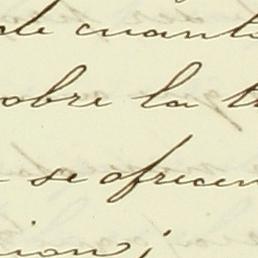 de cuant
obre la t
se ofrecen
ion;